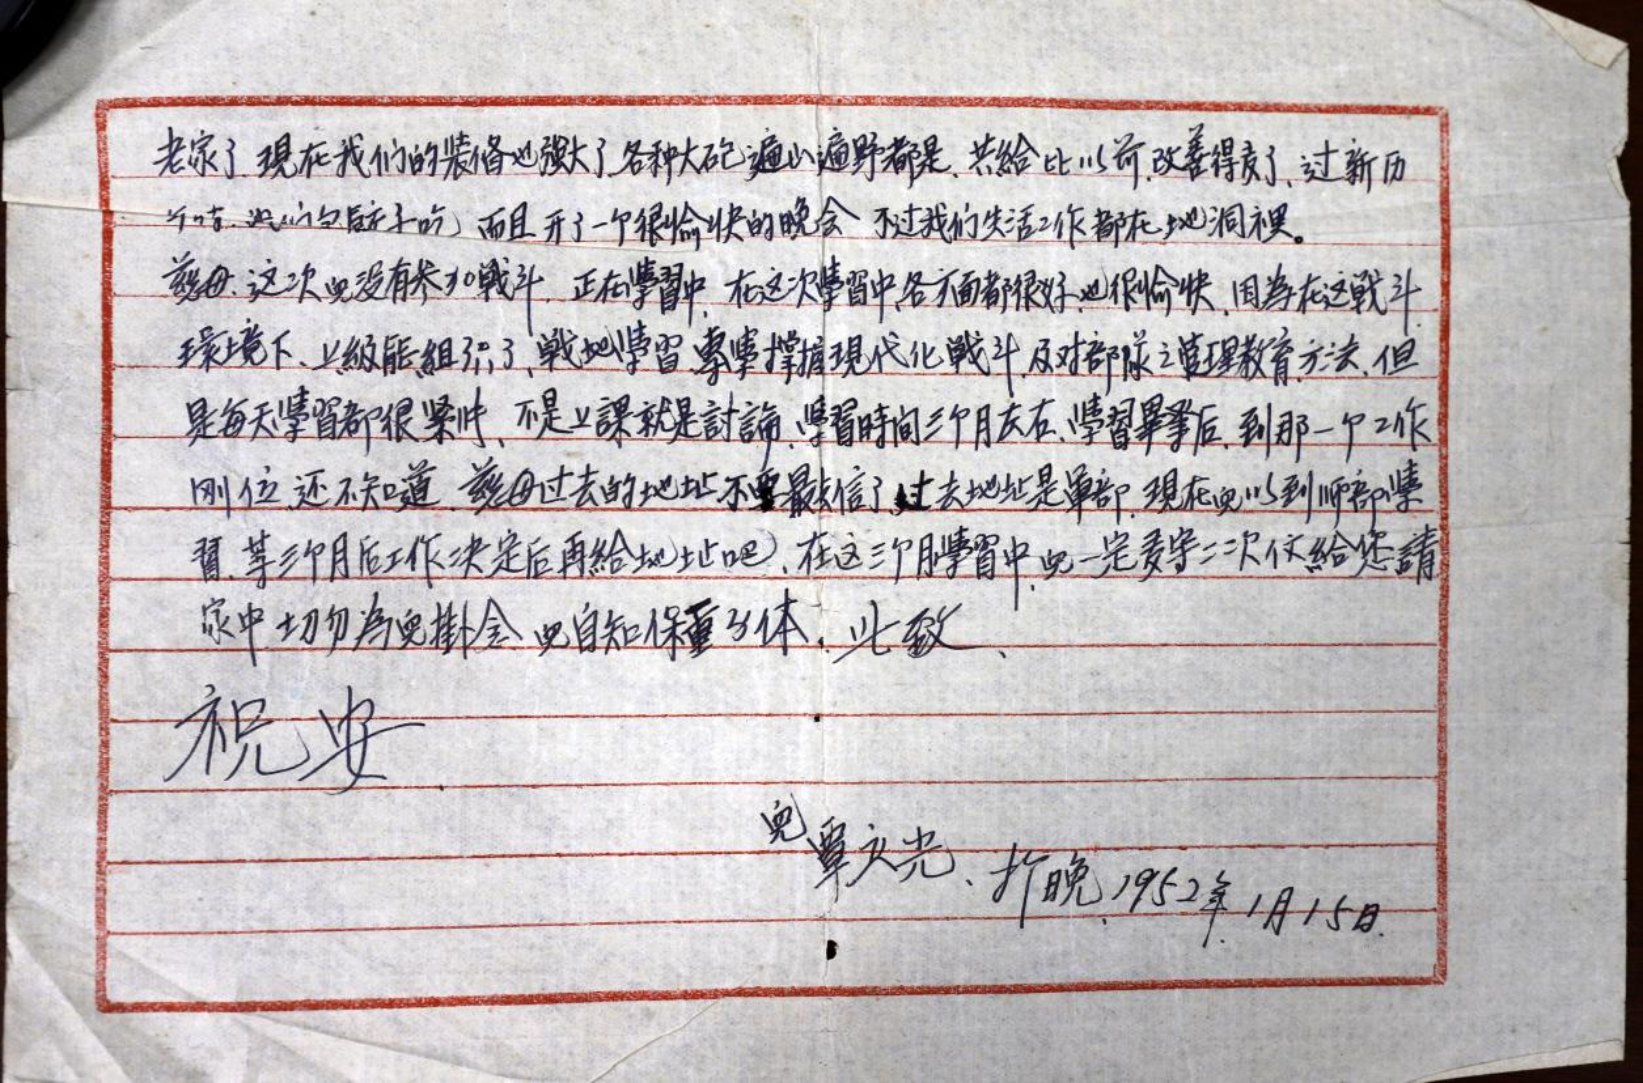 老家了.現在我们的装俻也強大了.各种大砲遍山遍野都是.共給比以前.改善得多了、过新历
包餃子吃）而且开了一个很愉快的晚会 不过我们生活工作都在地洞裡。
慈母.这次兒没有参加戰斗.正在學習中.在这次學習中.各方面都很好.也很愉快、因為在这戰斗
環境下、上級能組织了、戰地學習.專學掌握現代化戰斗.及对部隊之管理教育方法.但
是每天學習都很紧忡、不是上課就是討論、學習時间三个月左右.學習畢業后.到那一个工作
刚位.还不知道.慈母过去的地址不要 信了.过去地址是軍部.現在兒以到师部學
習.等三个月后工作决定后再給地址吧）、在这三个月學習中.兒一定多写二次信給您請
家中切勿為兒掛念 兒自知保重身体.此致、
祝安
兒覃文光、於晚、1952年1月15日.